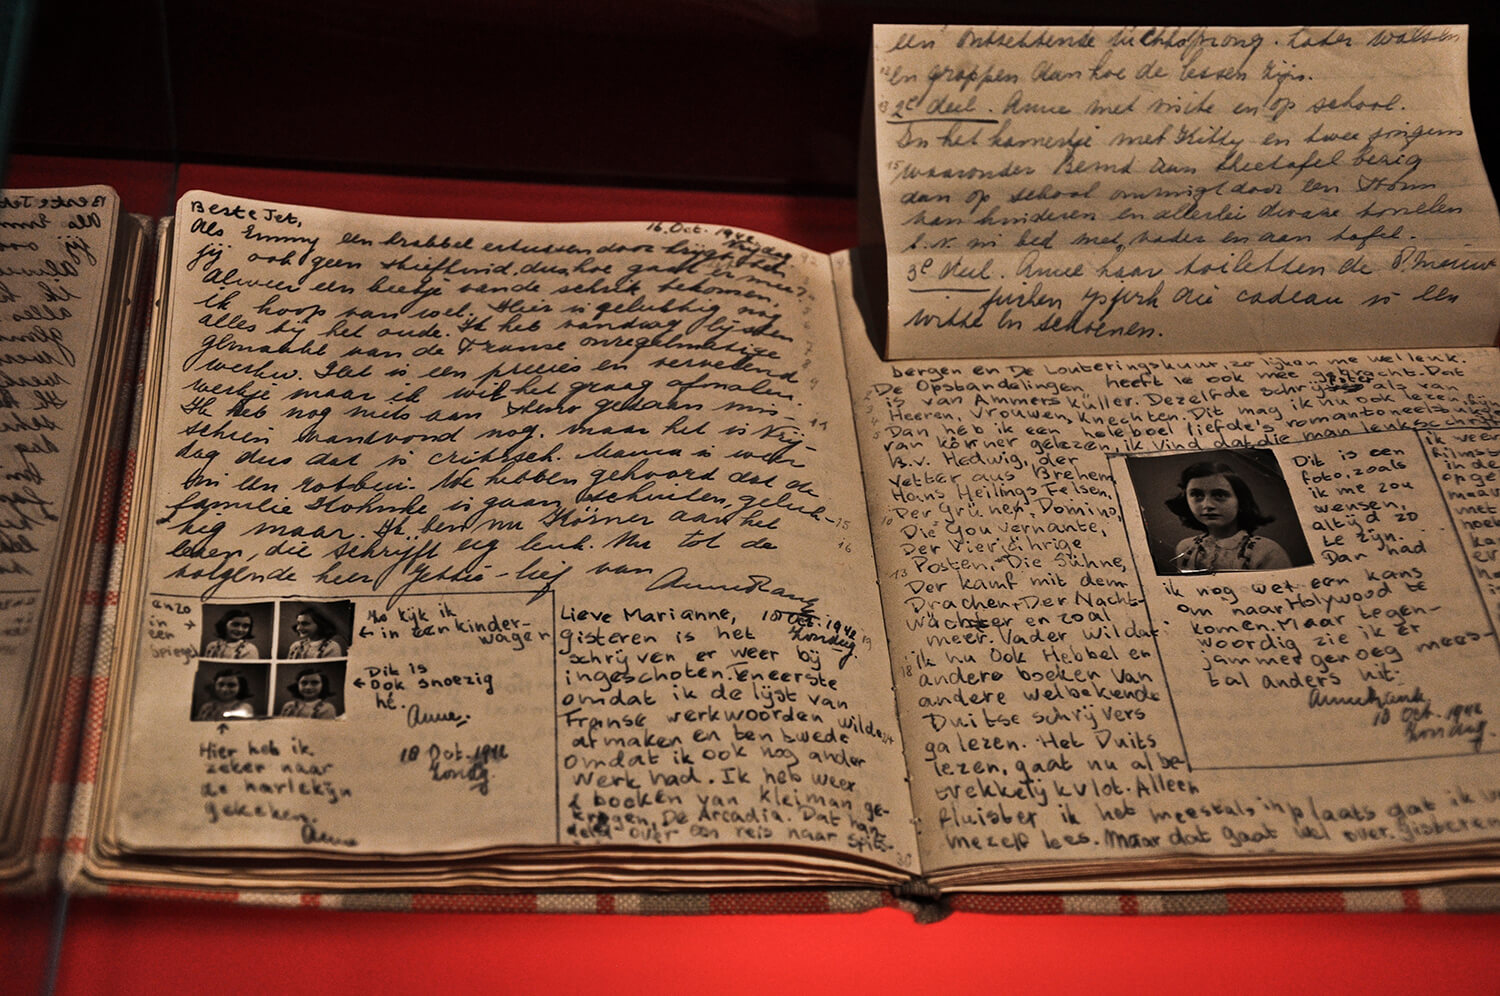 Beste Jet,
16. Oct. 1942
Vrijdag
Als Emmy een krabbel ertussendoor krijgt
jij ook geen stiefkind, dus hoe gaat er mee?
Alweer een beetje van de schrik bekomen,
ik hoop van wel. Hier is gelukkig nog
alles bij het oude. Ik heb vandaag lijsten
gemaakt van de Franse onregelmatige
werkw. Het is een precies en vervelend
werkje maar ik wil het graag afmaken.
Ik heb nog niets aan steno gedaan mis-
schien vanavond nog. maar het is Vrij-
dag dus dat is critisch. Mama is weer
in een rotbui. We hebben gehoord dat de
familie is gaan schuilen, geluk-
kig maar. Ik ben nu Körner aan het
lezen, die schrijft erg leuk. Nu tot de
volgende keer Jettie-lief van
Anne Frank
enzo
in
een
spiegel
Zo kijk ik
in een kinder-
wagen
Dit is
ook snoezig
hè.
Anne.
18 Oct. 1942
Zondag
Hier heb ik
zeker naar
de harlekijn
gekeken.
Anne
Lieve Marianne,
18 Oct. 1942
Zondag
Gisteren is het
schrijven er weer bij
ingeschoten. Ten eerste
omdat ik de lijst van
Franse werkwoorden wilde
afmaken en ten twede
omdat ik ook nog ander
werk had. Ik heb weer
2 boeken van Kleiman ge-
kregen, De Arcadia. Dat han-
deld over een reis naar Spits-
een ontzettende luchtsprong. Later walsen
en grappen dan hoe de lessen zijn.
2e deel. Anne met visite en op school.
In het kamertje met Kitty en twee jongens
waaronder Bernd aan theetafel bezig
dan op school omringt door een
van kinderen en allerlei dwaze tonelen
b.v. in bed met vader en aan tafel.
3e deel. Anne haar toiletten de 8 nieuwe
jurken die cadeau is een
witte en schoenen.
bergen en De Louteringskuur, zo lijken me wel leuk.
De Opstandelingen, heeft ie ook mee gebracht. Dat
is van Ammers küller. Dezelfde schrijfster als van
Heeren, Vrouwen, Knechten. Dit mag ik nu ook lezen, fijn
Dan heb ik een heleboel liefde's romantoneelstukjes
van Körner gelezen, ik vind dat die man leuk schrijft
B.v. Hedwig, der
Vetter aus Brehem,
Hans Heilings Felsen,
Der Grünen Domino,
Die Gouvernante,
Der Vierjährige
Posten, Die Sühne,
Der kamf mit dem
Drachen, Der Nacht-
wächter en zoal
meer. Vader wil dat
ik nu ook Hebbel en
andere boeken van
andere welbekende
Duitse schrijvers
ga lezen. Het Duits
lezen, gaat nu al be-
trekkelijk vlot. Alleen
fluister ik het meestal inplaats dat ik
mezelf lees. Maar dat gaat wel over. Gisteren
Dit is een
foto, zoals
ik me zou
wensen,
altijd zo
te zijn.
Dan had
ik nog wel een kans
om naar Holywood te
komen. Maar tegen-
woordig zie ik er
jammer genoeg mees-
tal anders uit.
Anne Frank
18 Oct. 1942
Zondag.